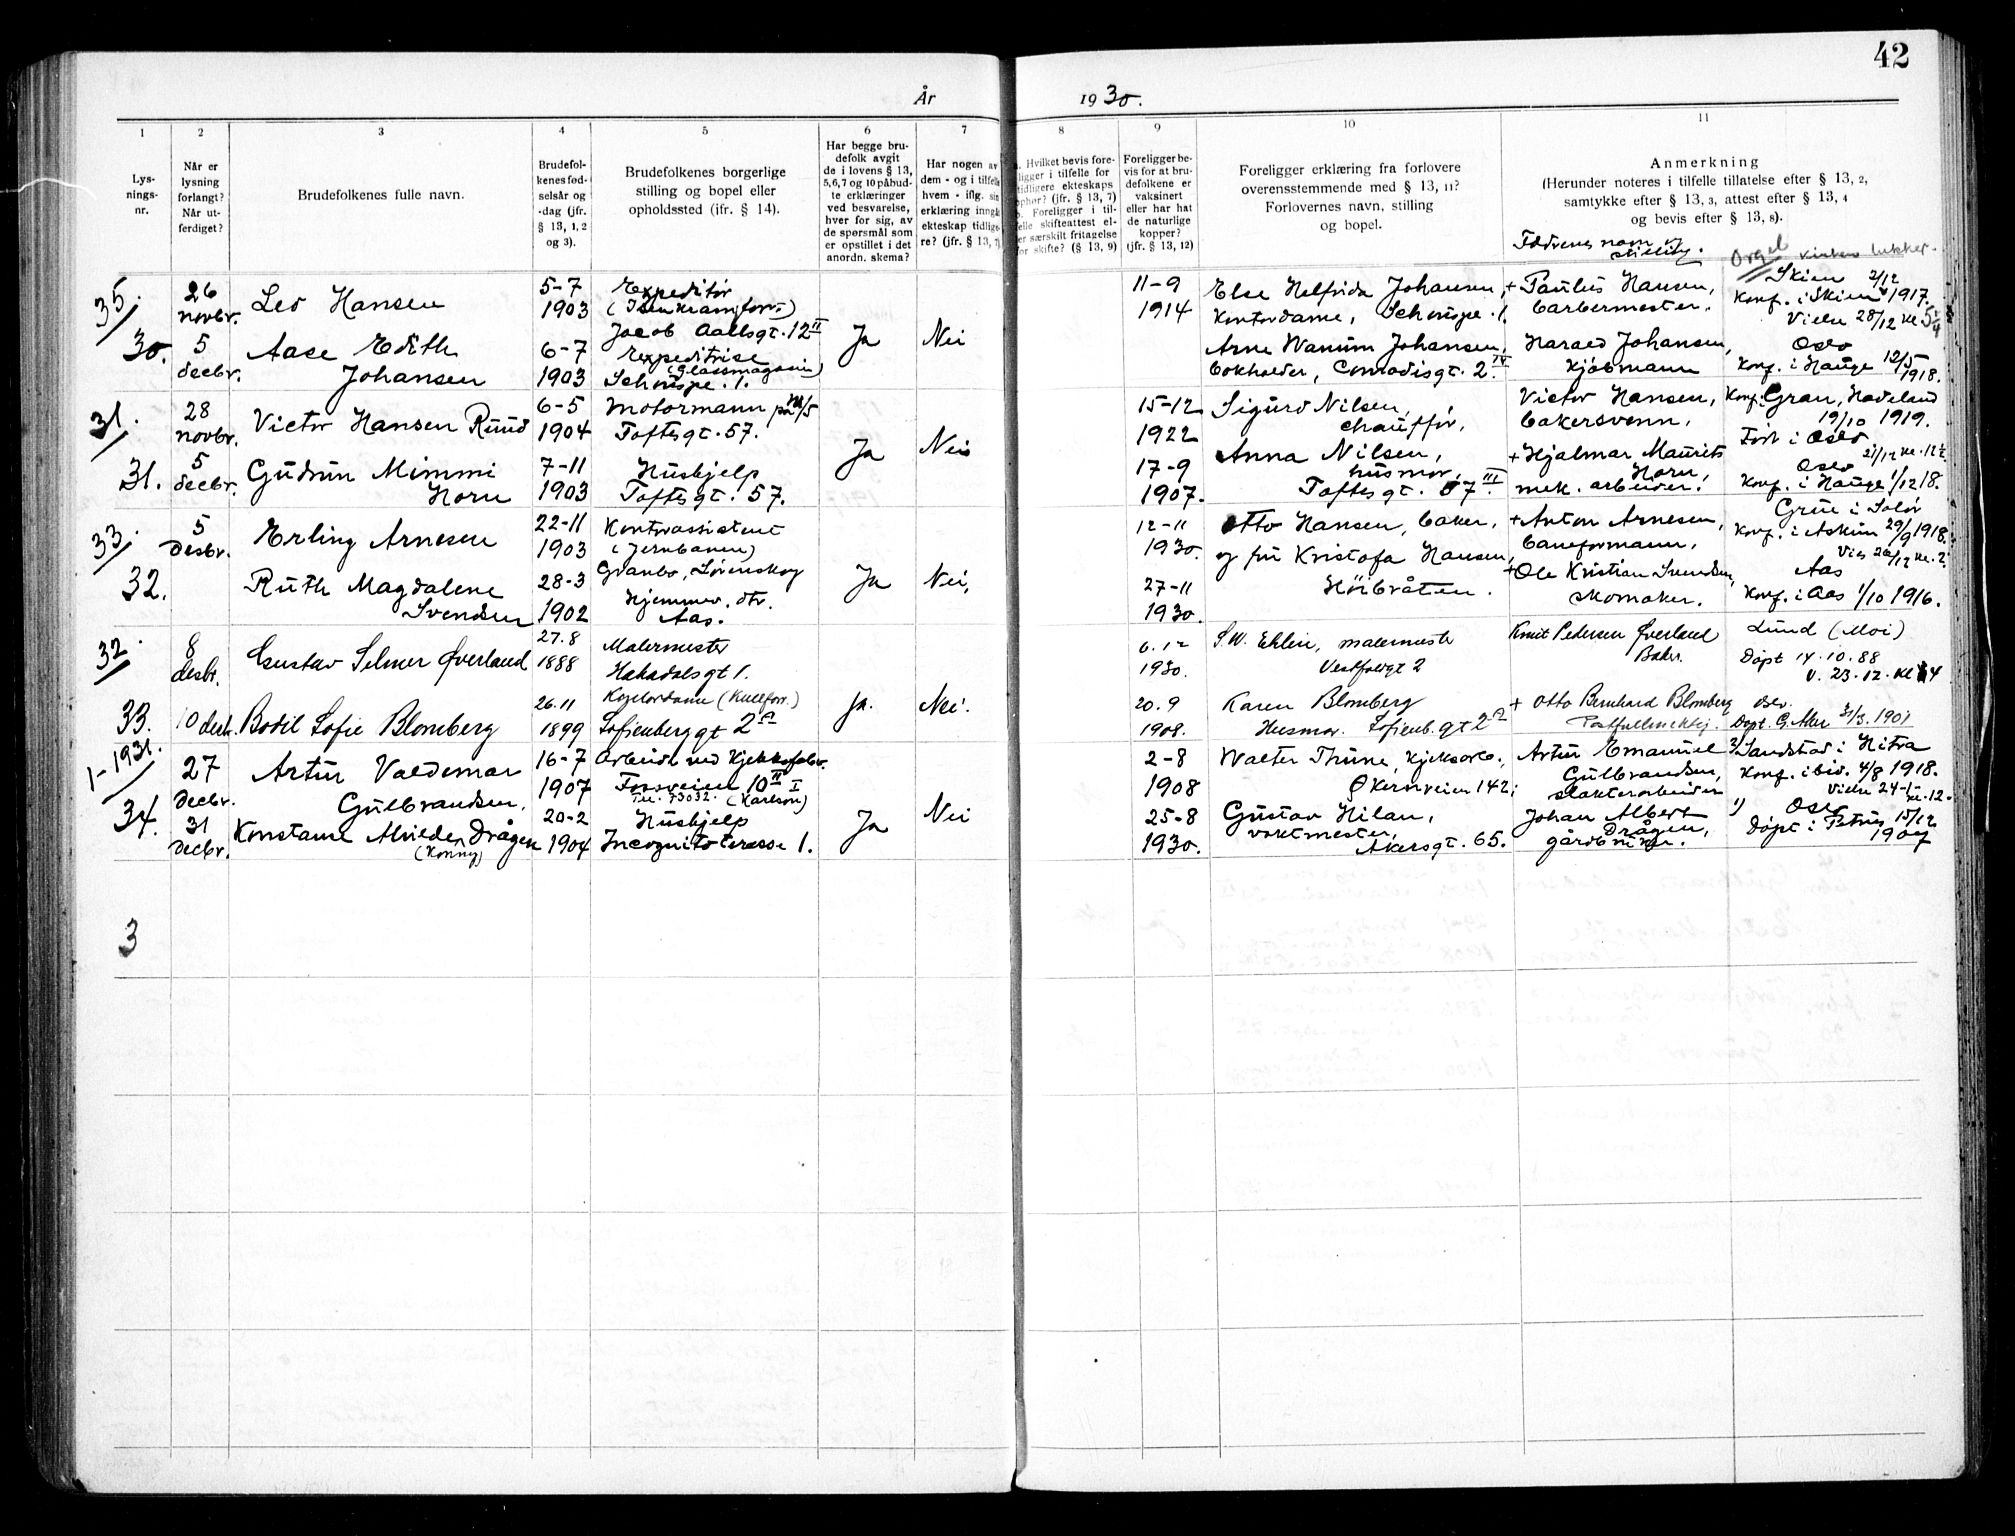 42
År 1930.
1 2 3 4 5 6 7 8 9 10 11
Lys-
nings-
nr.
Når er
lysning
forlangt?
Når ut-
ferdiget?
Brudefolkenes fulle navn.
Brudefol-
kenes fød-
selsår og
-dag (jfr.
§ 13, 1, 2
og 3).
Brudefolkenes borgerlige
stilling og bopel eller
opholdssted (ifr. § 14).
Har begge bru-
defolk avgit
de i lovens § 13,
5, 6, 7 og 10 påbud-
te erklæringer
ved besvarelse,
hver for sig, av
de spørsmål som
er opstillet i det
anordn. skema?
Har nogen av
dem - og i tilfelle
hvem - iflg. sin
erklæring inngått
ekteskap tidlige-
re? (jfr. § 13, 7)
Hvilket bevis fore-
ligger i tilfelle for
tidligere ekteskaps
ophør? (jfr. § 13, 7)
Foreligger i til-
felle skifteattest el-
er særskilt fritagelse
for skifte? (§ 13, 9)
Foreligger be-
vis for at bru-
defolkene er
vaksinert
eller har hat
de naturlige
kopper?
(jfr. § 13, 12)
Foreligger erklæring fra forlovere
overensstemmende med § 13, 11?
Forlovernes navn, stilling
og bopel.
Anmerkning
(Herunder noteres i tilfelle tillatelse efter § 13, 2,
samtykke efter § 13, 3, attest efter § 13, 4
og bevis efter § 13, 8).
Fædrenes navn og
stilling.
Orgel
35.
30.
26
novbr.
5
decbr.
Leo Hansen
Aase Edith
Johansen
5-7
1903
6-7
1903
Expeditør
(Isenkramforr.)
Jacob Aallsgt. 12 II
Expeditrise
(Glassmagasin)
Schousspl. 1.
Ja
Nei
11-9
1914
Else Helfrida Johansen,
Kontordame, Schouspl. 1.
Arne Wanum Johansen,
bokholder, Conradisgt. 2 IV
+ Paulus Hansen,
barbermester.
Harald Johansen,
kjøbmann
Skien 2/12
Konf. i Skien 1917.
Vielse 28/12 kl. 5 1/4
Oslo
Konf. i Hauge 12/5
1918.
31.
31.
28
novbr.
5
decbr.
Victor Hansen Ruud
Gudrun Mimmi
Horn
6-5
1904
7-11
1903
Motormann på M/S
Toftesgt. 57.
Hushjelp
Toftesgt. 57.
Ja
Nei
15-12
1922
17-9
1907.
Sigurd Nilsen,
chauffør,
Anna Nilsen,
husmor,
Toftesgt. 57 III.
Victor Hansen,
bakersvenn.
+ Hjalmar Maurits
Horn,
mek. arbeider.
Konf. i Gran, Hadeland
19/10 1919.
Født i Oslo
Oslo
Konf. i Hauge 1/12 18.
33.
32.
5
desbr.
Erling Arnesen
Ruth Magdalene
Svendsen
22-11
1903
28-3
1902
Kontorassistent
(i Jernbanen)
Granbo, Lørenskog
Hjemmev. dtr.
Aas.
Ja
Nei,
12-11
1930.
27-11
1930.
Otto Hansen, baker,
og fru Kristofa Hansen,
Höibråten.
+ Anton Arnesen,
baneformann.
+ Ole Kristian Svendsen,
skomaker.
Grue i Solør
Konf. i Askim 29/9 1918.
Vies 26/12 kl. 2.
Aas
Konf. i Aas 1/10 1916.
32.
33.
8
desbr.
10 desb.
Gustav Selmer Øverland
Bodil Sofie Blomberg
27.8
1888
26.11
1899
Malermester
Hakadalsgt 1.
Kontordame (Kullforr.)
Sofienberggt 2 A
Ja.
Nei.
6.12
1930.
20.9
1908.
S.W. Ehlin, malermester
Vestfoldgt 2
Karen Blomberg
Husmor. Sofienb.gt 2 A
Knut Pedersen Øverland
Baker.
+ Otto Bernhard Blomberg
Lund (Moi)
Døpt 14.10.88
V. 23.12. kl 4
Oslo.
Døpt. G. Aker 31/3. 1901
1-1931.
34.
27
Decbr.
31
Decbr.
Artur Valdemar
Gulbrandsen.
Konstanse Alvilde Drågen
(Konny)
16-7
1907
20-2
1904
Arbeider ved Kjeksfabr.
Fossveien 10 II I
Tel. 73032. (Karlson)
Hushjelp
Incognito terasse 1.
Ja
Nei
2-8
1908
25-8
1930.
Walter Thune, kjeksarb.,
Økernveien 142;
Gustav Hilan,
vaktmester,
Akersgt. 65.
Artur Emanuel
Gulbrandsen,
slakterarbeider
Johan Albert
Drågen,
gårdbruker.
Sandstad i Hitra
Konf. ibid. 4/8 1918.
Vielse 24-1
kl. 12.
1) Oslo
Døpt i Petrus 15/12
1907
3